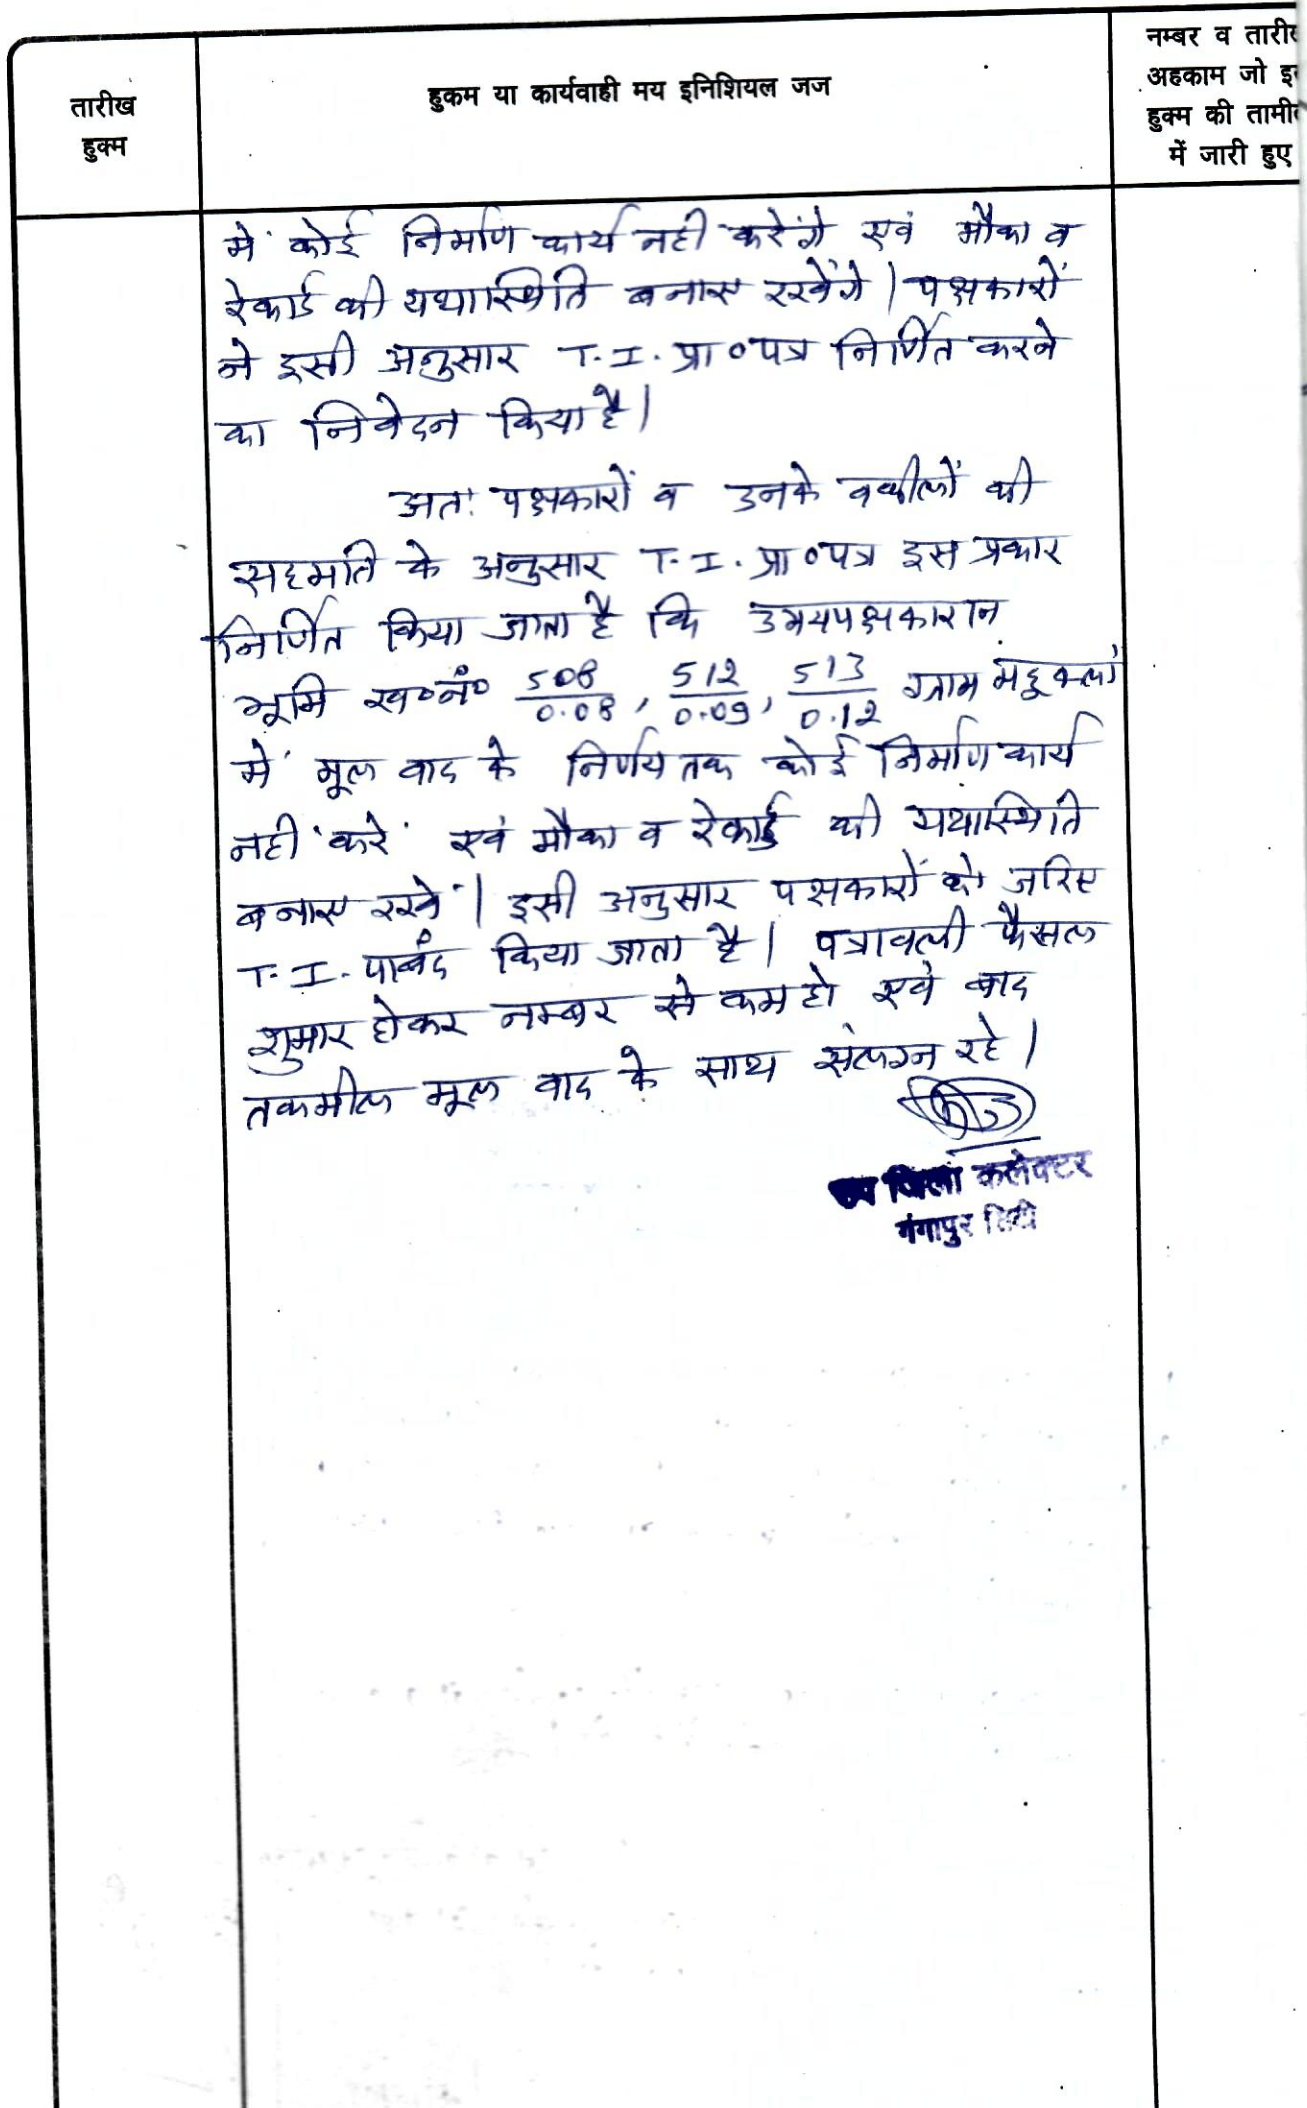 तारीख
हुक्म
हुकम या कार्यवाही मय इनिशियल जज
नम्बर व तारीख
अहकाम जो इस
हुक्म की तामील
में जारी हुए
में कोई निर्माण कार्य नही करेंगे एवं मौका व
रेकार्ड की यथास्थिति बनाए रखेंगे। पक्षकारों
ने इसी अनुसार T.I. प्रा०पत्र निर्णित करने
का निवेदन किया है।
अतः पक्षकारों व उनके वकीलों की
सहमति के अनुसार T.I. प्रा०पत्र इस प्रकार
निर्णित किया जाता है कि उभयपक्षकारान
भूमि ख०नं० 508/0.08, 512/0.09, 513/0.12 ग्राम महूकलां
में मूल वाद के निर्णय तक कोई निर्माण कार्य
नही करें एवं मौका व रेकार्ड की यथास्थिति
बनाए रखें। इसी अनुसार पक्षकारों को जरिए
T.I. पाबंद किया जाता है। पत्रावली फैसल
शुमार होकर नम्बर से कम हो एवं बाद
तकमील मूल वाद के साथ संलग्न रहे।
उप जिला कलेक्टर
गंगापुर सिटी